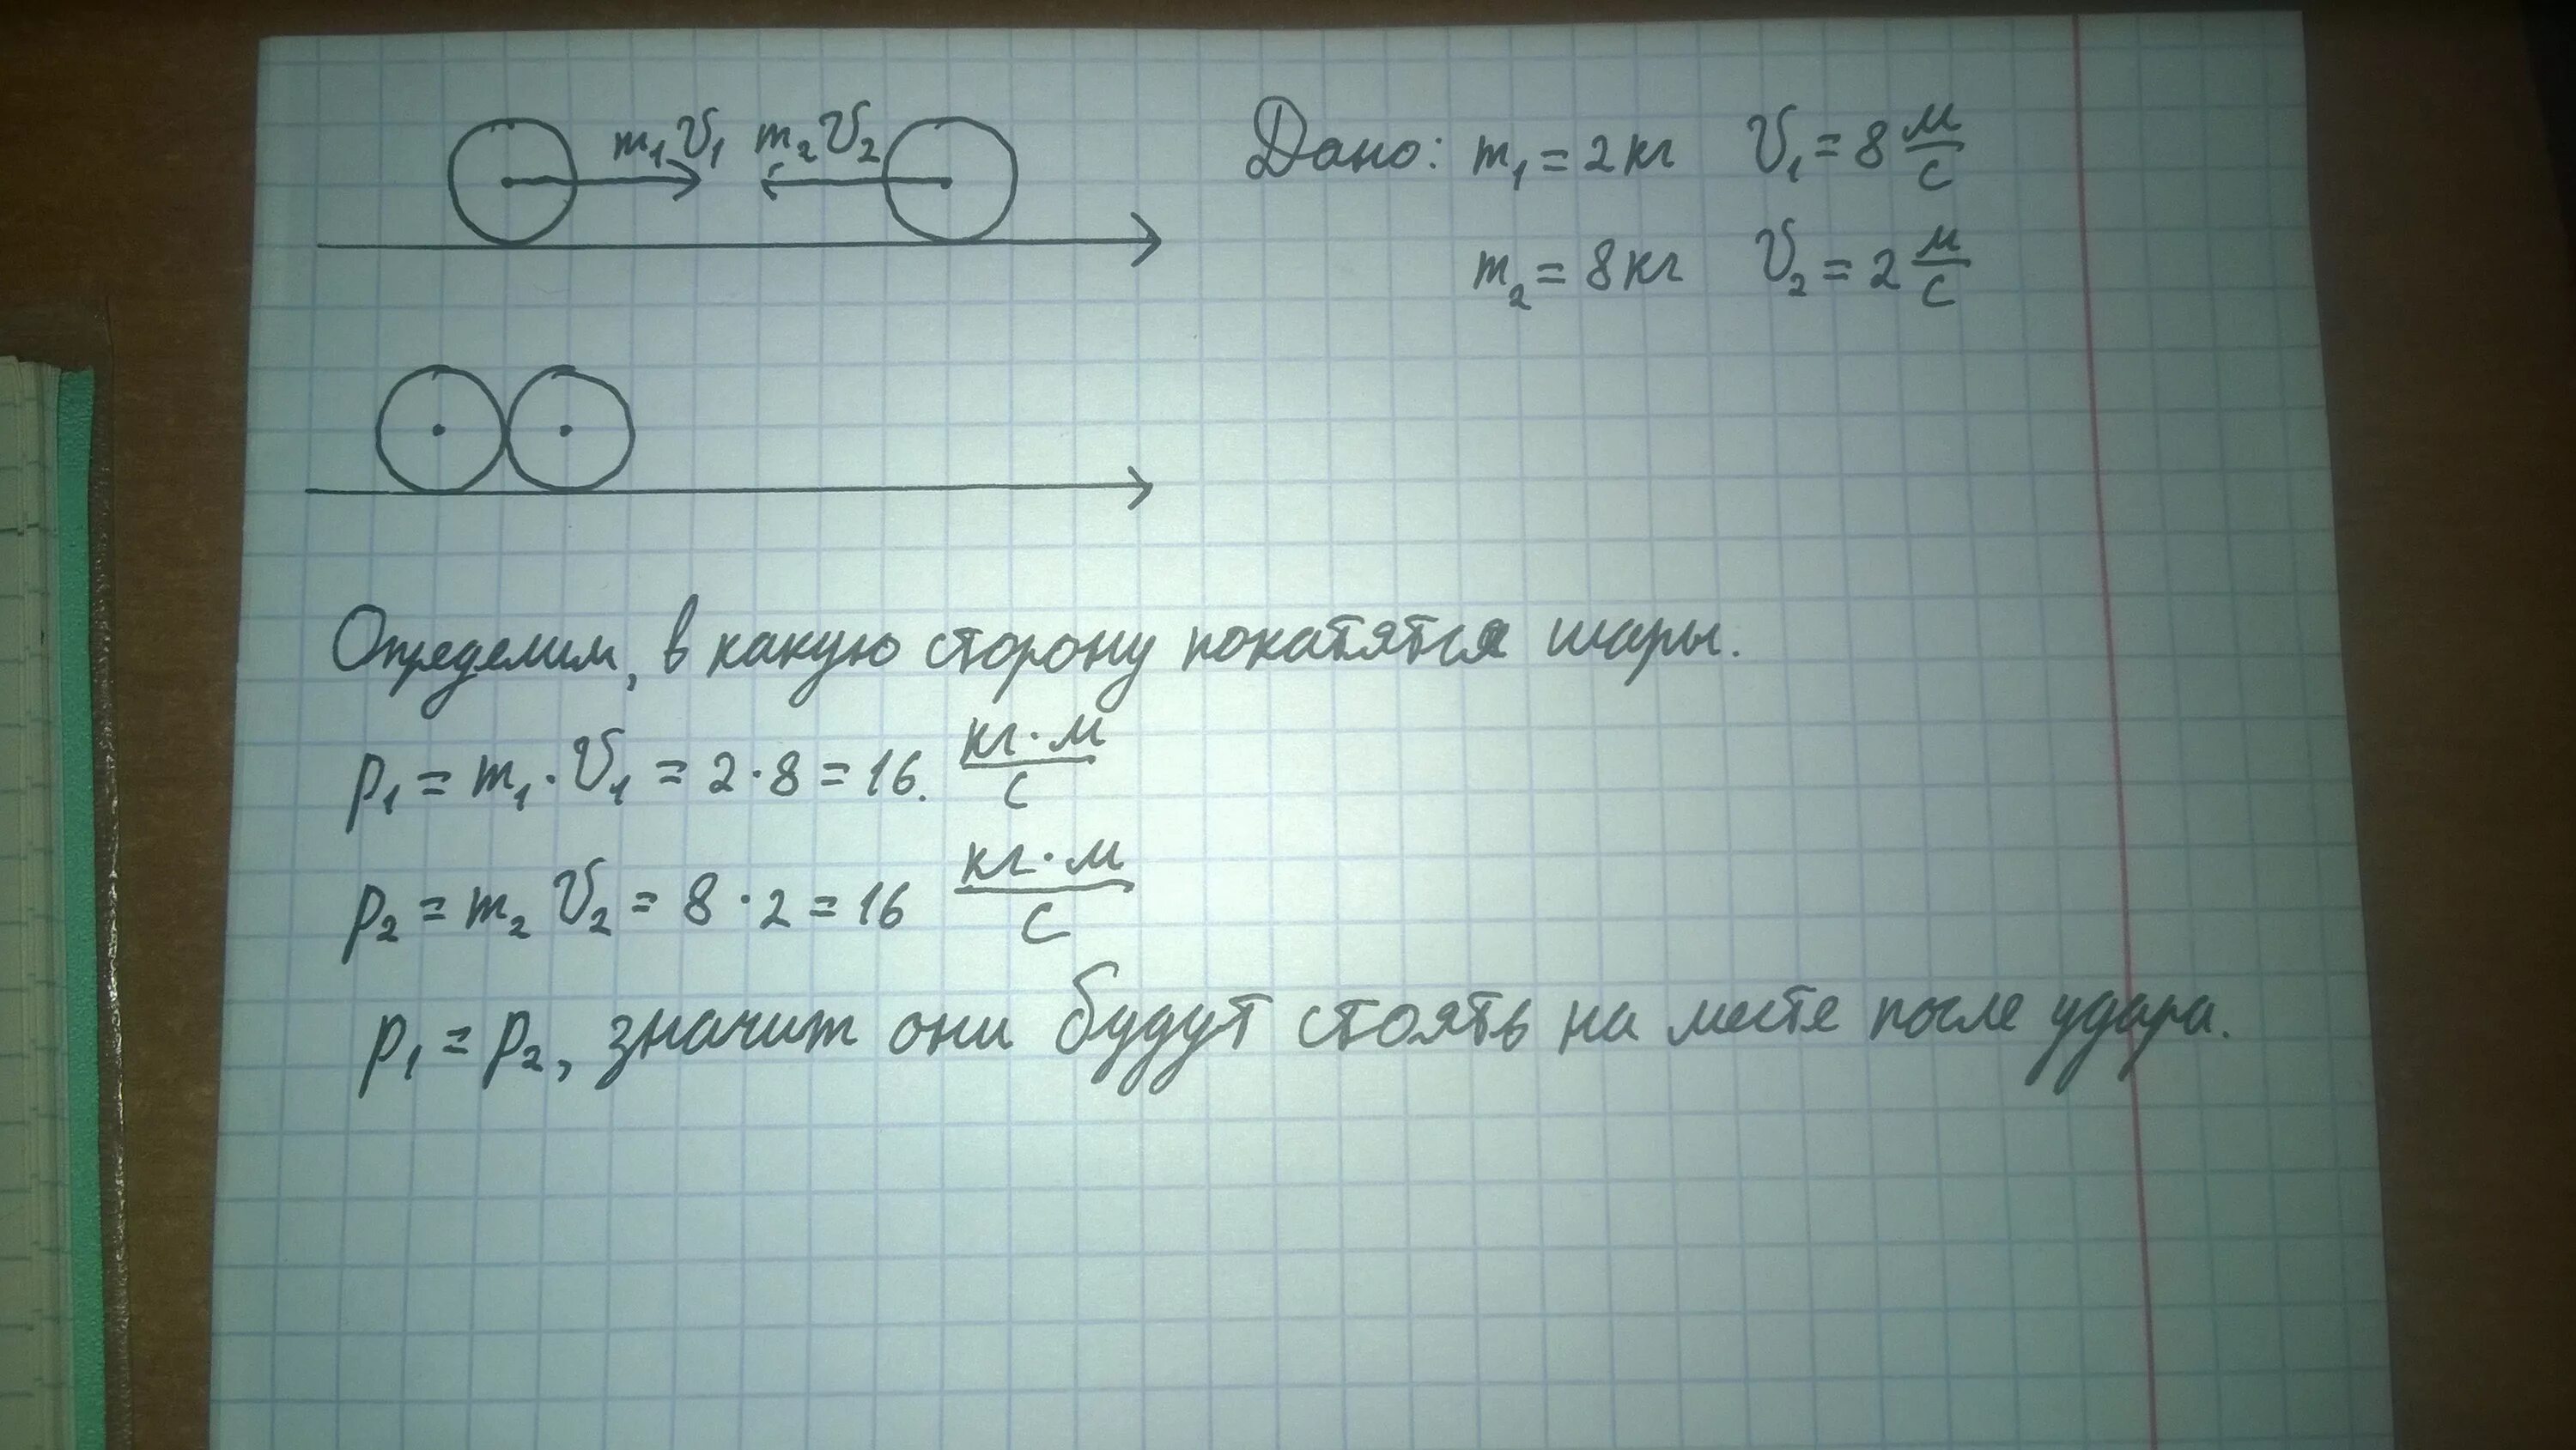 m₁V₁ m₂V₂
Дано: m₁ = 2кг V₁ = 8 м/с
m₂ = 8кг V₂ = 2 м/с
Определим, в какую сторону покатятся шары.
p₁ = m₁ · V₁ = 2 · 8 = 16. кг·м/с
p₂ = m₂ V₂ = 8 · 2 = 16 кг·м/с
p₁ = p₂, значит они будут стоять на месте после удара.